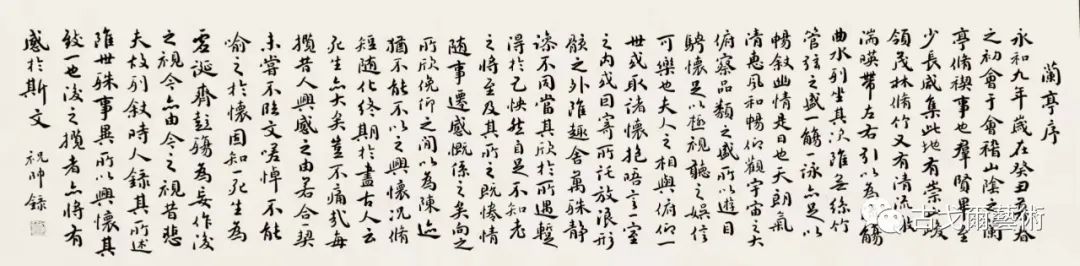 蘭亭序
永和九年歲在癸丑暮春
之初會于會稽山陰之蘭
亭脩稧事也羣賢畢至
少長咸集此地有崇山峻
領茂林脩竹又有清流激
湍暎帶左右引以為流觴
曲水列坐其次雖無絲竹
管弦之盛一觴一詠亦足以
暢敘幽情是日也天朗氣
清惠風和暢仰觀宇宙之大
俯察品類之盛所以遊目
騁懷足以極視聽之娛信
可樂也夫人之相與俯仰一
世或取諸懷抱悟言一室
之内或因寄所託放浪形
骸之外雖趣舍萬殊靜
躁不同當其欣於所遇暫
得於己怏然自足不知老
之將至及其所之既惓情
隨事遷感慨係之矣向之
所欣俛仰之間以為陳迹
猶不能不以之興懷況脩
短隨化終期於盡古人云
死生亦大矣豈不痛哉每
攬昔人興感之由若合一契
未嘗不臨文嗟悼不能
喻之於懷固知一死生為
虛誕齊彭殤為妄作後
之視今亦由今之視昔悲
夫故列敘時人錄其所述
雖世殊事異所以興懷其
致一也後之攬者亦將有
感於斯文
祝帥錄
古戈爾藝術